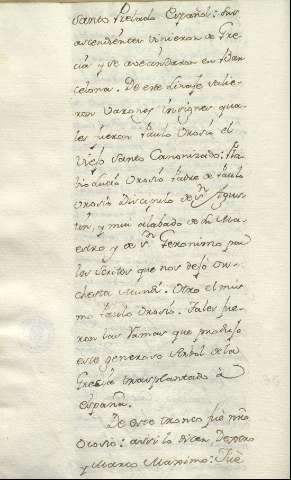 santo Prelado Español: Sus
ascendientes vinieron de Gre
cia, y se avecindaron en Bar
celona. De este linaje salie
ron varones insignes qua
les fueron Paulo Orosio el
Viejo santo Canonizado: Fla
bio Lucio Orosio Padre de Paulo
Orosio Discipulo de Sn. Agus
tin, y mui alabado de su Ma
estro y de Sn. Geronimo por
los escritos que nos dejó
Mundi. Otro el mis
mo Paulo Orosio. Tales fue
ron las ramas que produjo
este generoso Arbol de la
Grecia transplantado à
españa.
De este tronco fué nro.
Orosio: assi lo dicen, Dextro
y Marco Maximo: Fuè